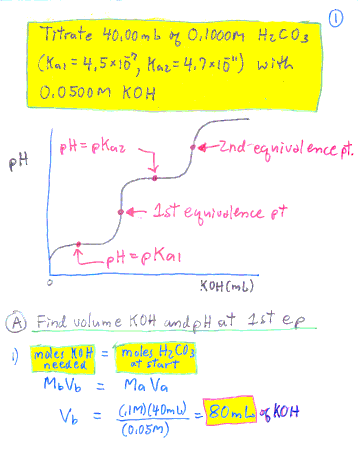 ①
Titrate 40.00 mL of 0.1000M H₂CO₃
(Ka1 = 4.5×10⁻⁷, Ka2 = 4.7×10⁻¹¹) with
0.0500M KOH
pH
pH = pKa2
2nd equivalence pt.
1st equivalence pt
pH = pKa1
0
KOH (mL)
Ⓐ Find volume KOH and pH at 1st ep
i) moles KOH needed = moles H₂CO₃ at start
MbVb = MaVa
Vb = (.1M)(40mL) / (0.05M) = 80mL of KOH